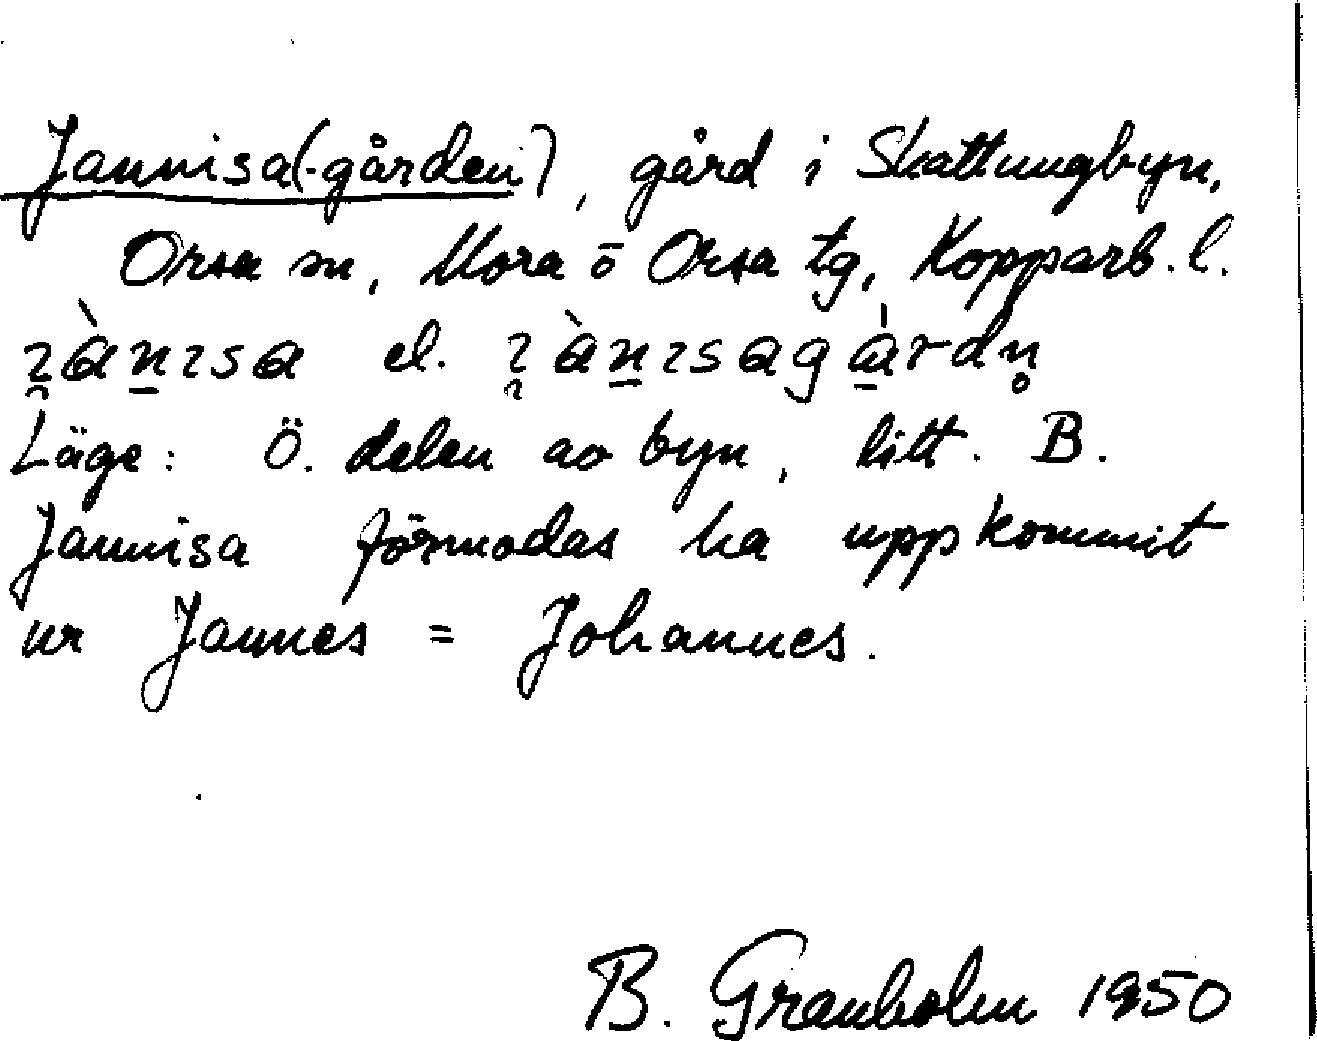 Jannisa(-gården), gård i Skattungbyn,
Orsa sn, Mora ō Orsa tg, Kopparb. l.
ɿ̯àn̲ɪsa el. ɿ̯àn̲ɪsagà̲rdn̥
Läge: Ö. delen av byn, litt. B.
Jannisa förmodas ha uppkommit
ur Jannes = Johannes.
B. Granholm 1950